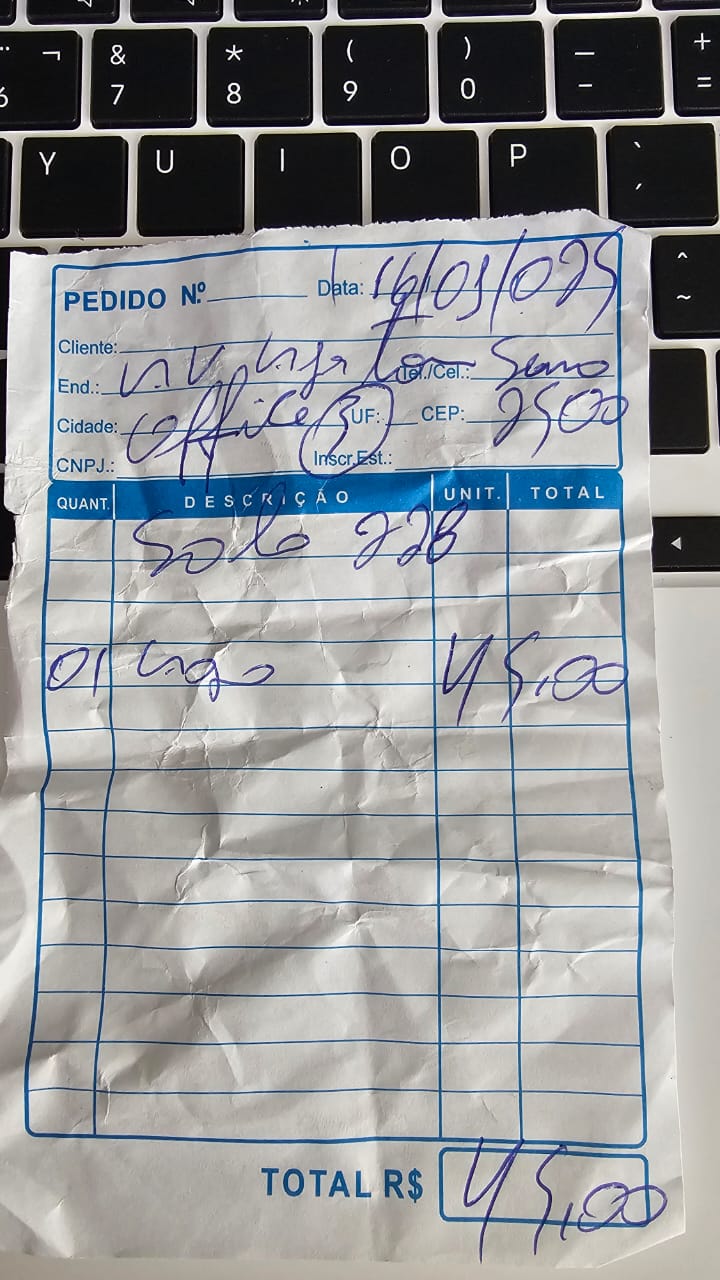 ¬ & * ( ) — +
6 7 8 9 0 - =
Y U I O P
PEDIDO Nº Data: 16/01/025
Cliente:
End.: Tel./Cel.:
Cidade: Office 3 UF: CEP: 2500
CNPJ.: Inscr.Est.:
QUANT. DESCRIÇÃO UNIT. TOTAL
Sala 228
01 45,00
TOTAL R$ 45,00